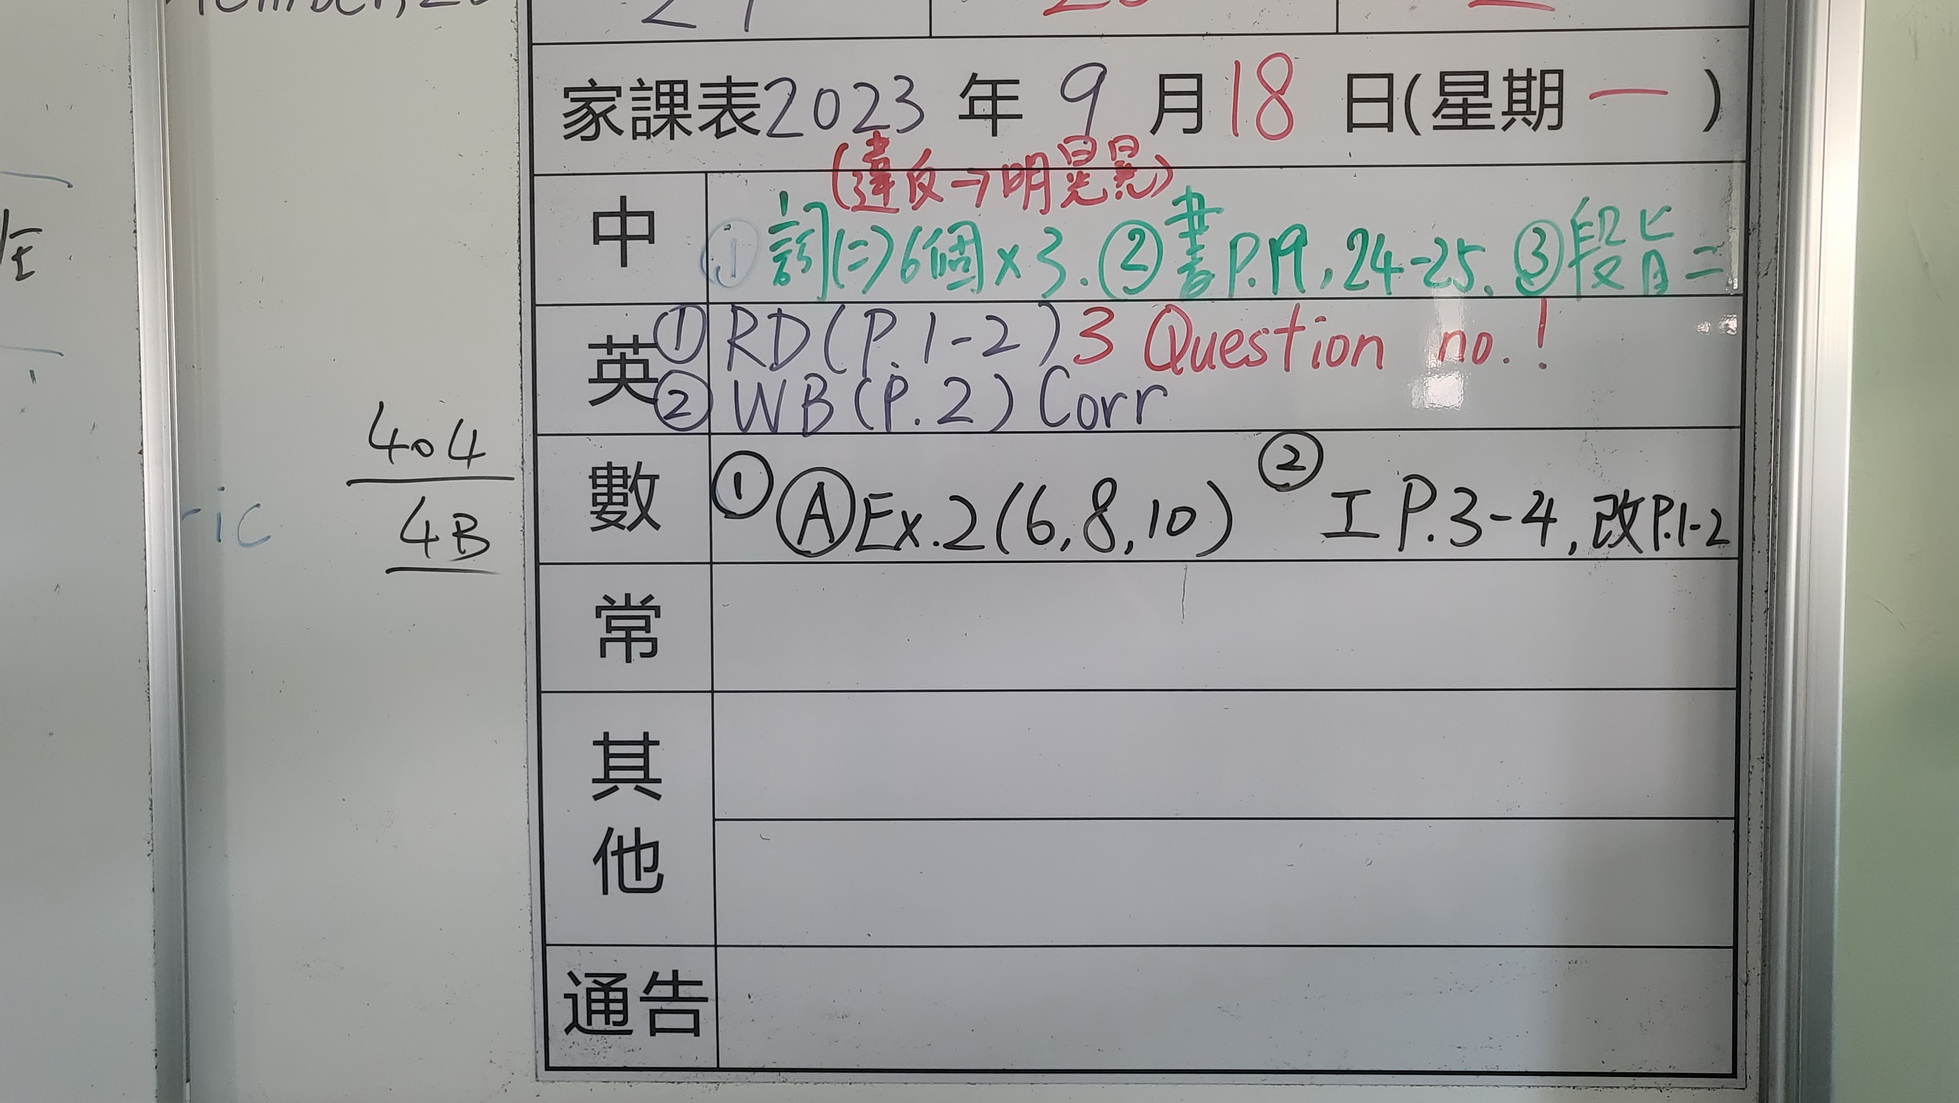 家課表2023 年 9 月 18 日(星期 一 )
(違反→明晃晃)
中 ① 詞(二)6個×3. ② 書P.19, 24-25. ③ 段旨=
英 ① RD(P.1-2) 3 Question no.!
② WB(P.2) Corr
數 ① Ⓐ Ex.2(6,8,10) ② 工 P.3-4, 改P.1-2
404
4B
ric
常
其他
通告